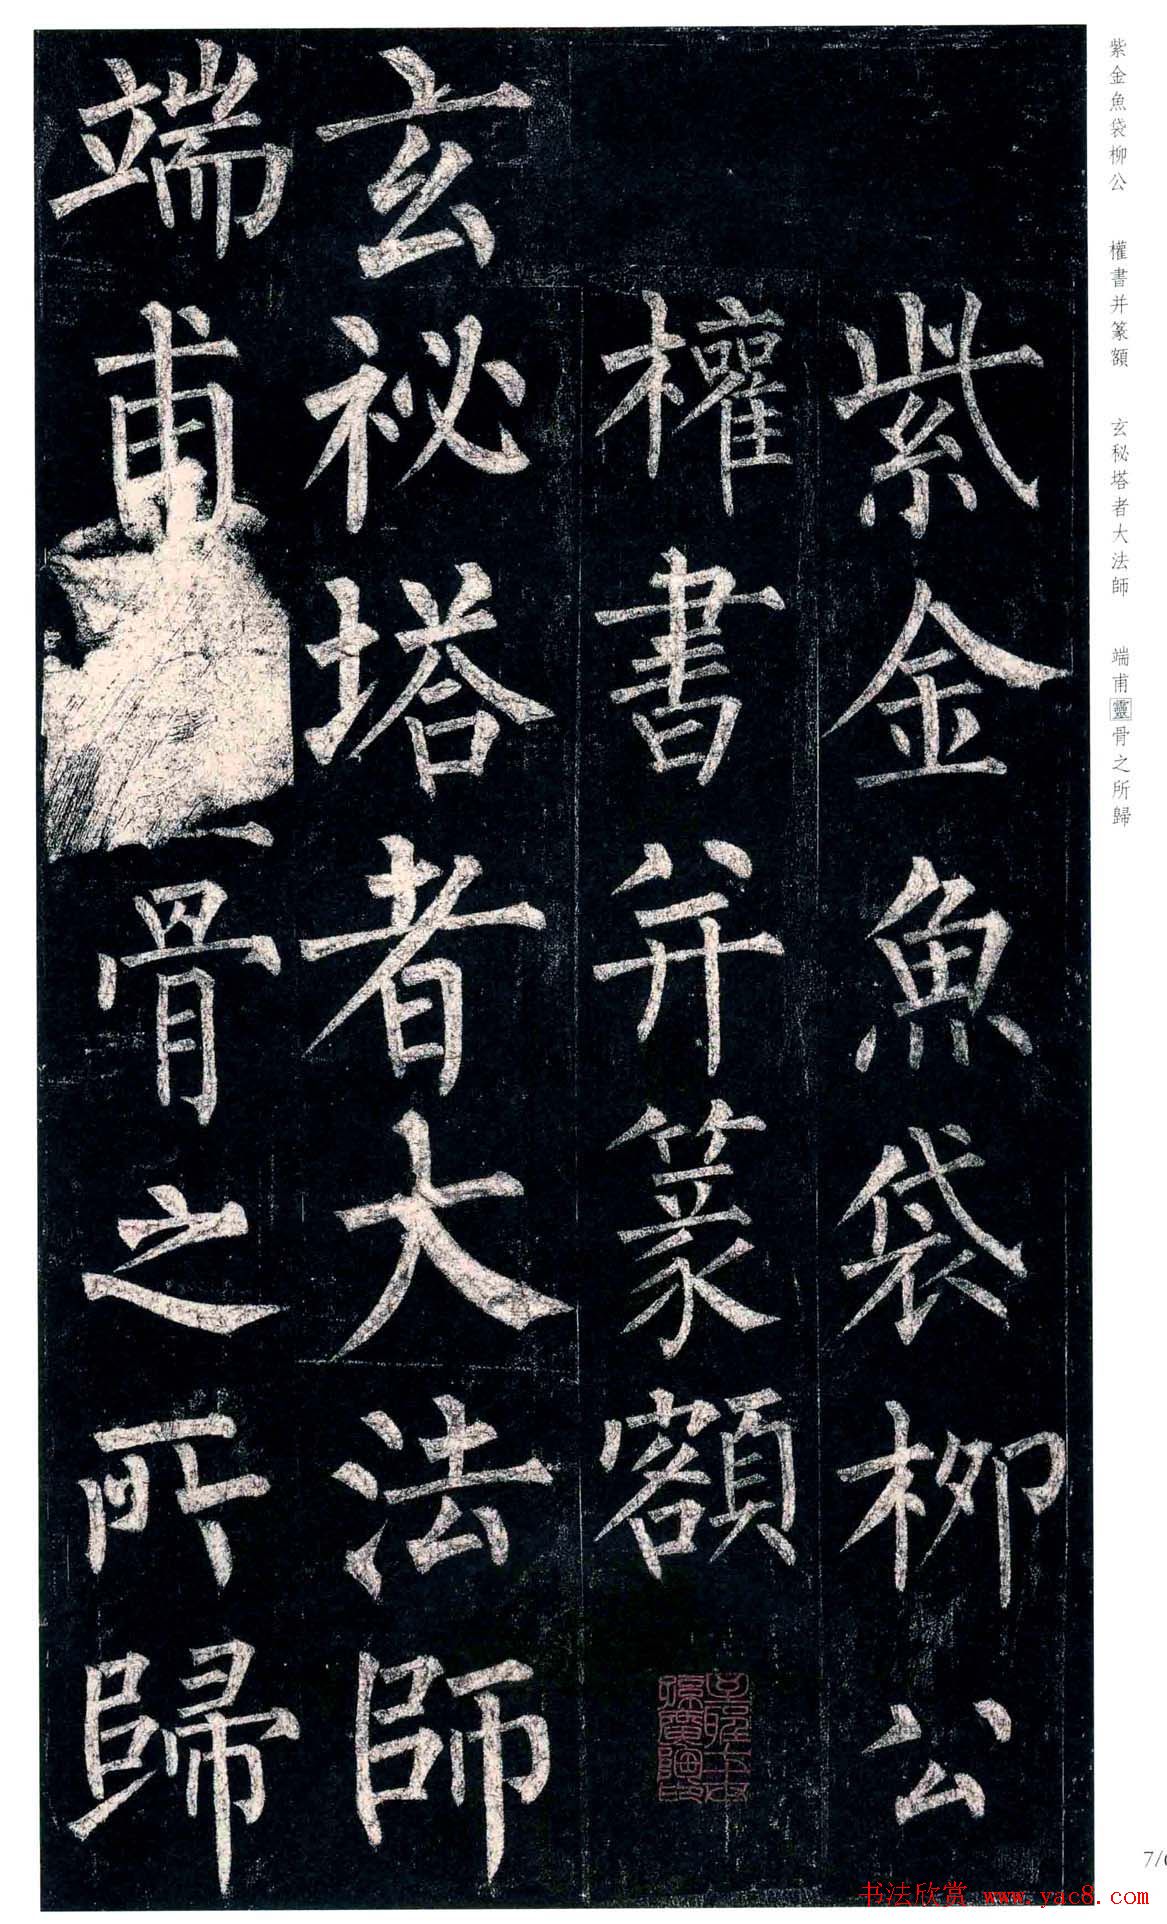 紫金魚袋柳公
權書并篆額
玄秘塔者大法師
端甫靈骨之所歸
紫金魚袋柳公
權書并篆額
玄祕塔者大法師
端甫骨之所歸
7/
书法欣赏 www.yac8.com